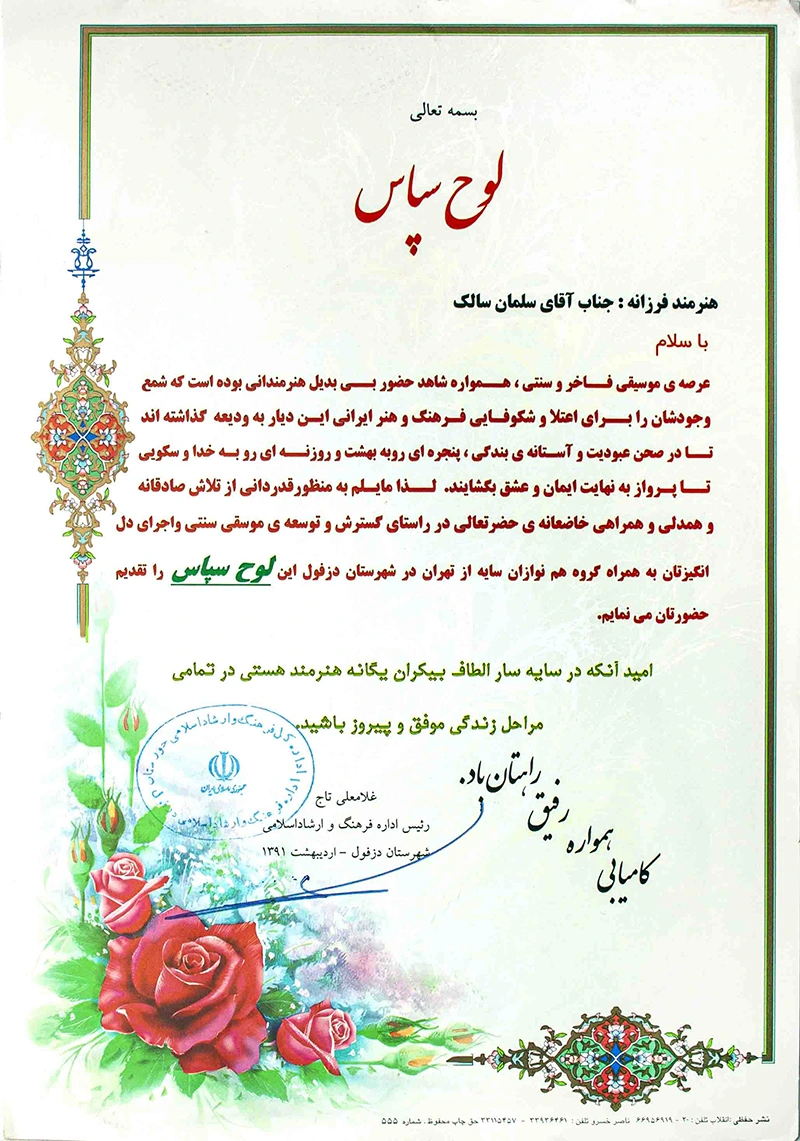 بسمه تعالی
لوح سپاس
هنرمند فرزانه : جناب آقای سلمان سالک
با سلام
عرصه ی موسیقی فـاخر و سنتی ، هـمواره شاهد حضور بـی بدیل هنرمندانی بوده است که شمع
وجودشان را بـرای اعتلا و شکوفایی فـرهنگ و هنر ایرانی ایـن دیار به ودیعه گذاشته اند
تـا در صحن عبودیت و آستانه ی بندگی ، پنجره ای روبه بهشت و روزنـه ای رو بـه خدا و سکویی
تـا پـرواز به نهایت ایمان و عشق بگشایند. لـذا مایلم به منظورقدردانی از تلاش صادقانه
و همدلی و همراهی خاضعانه ی حضرتعالی در راستای گسترش و توسعه ی موسقی سنتی واجرای دل
انگیزتان به همراه گروه هم نوازان سایه از تهران در شهرستان دزفول این لوح سپاس را تقدیم
حضورتان می نمایم.
امید آنکه در سایه سار الطاف بیکران یگانه هنرمند هستی در تمامی
مراحل زندگی موفق و پیروز باشید.
کامیابی همواره رفیق راهتان باد.
اداره کل فرهنگ و ارشاد اسلامی خوزستان
جمهوری اسلامی ایران
اداره فرهنگ و ارشاد اسلامی
غلامعلی تاج
رئیس اداره فرهنگ و ارشاداسلامی
شهرستان دزفول – اردیبهشت ۱۳۹۱
نشر حفاظی :انقلاب تلفن : ۲۰ - ۶۶۹۵۶۹۱۹ ناصر خسرو تلفن : ۳۳۹۳۶۴۶۱ - ۳۳۱۱۵۴۵۷ حق چاپ محفوظ . شماره ۵۵۵